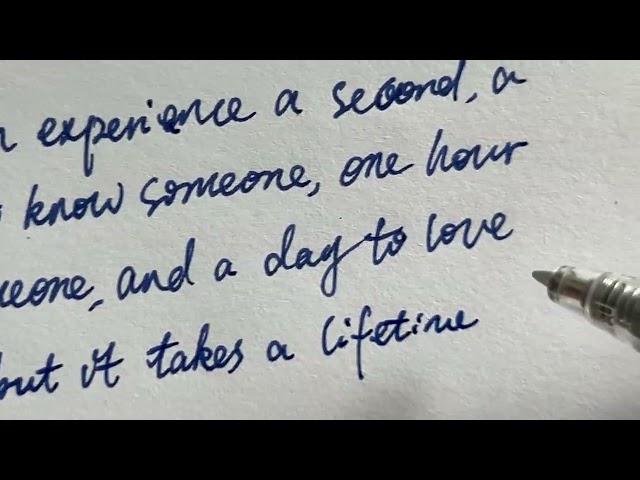 experience a second, a
know someone, one hour
and a day to love
but it takes a lifetime